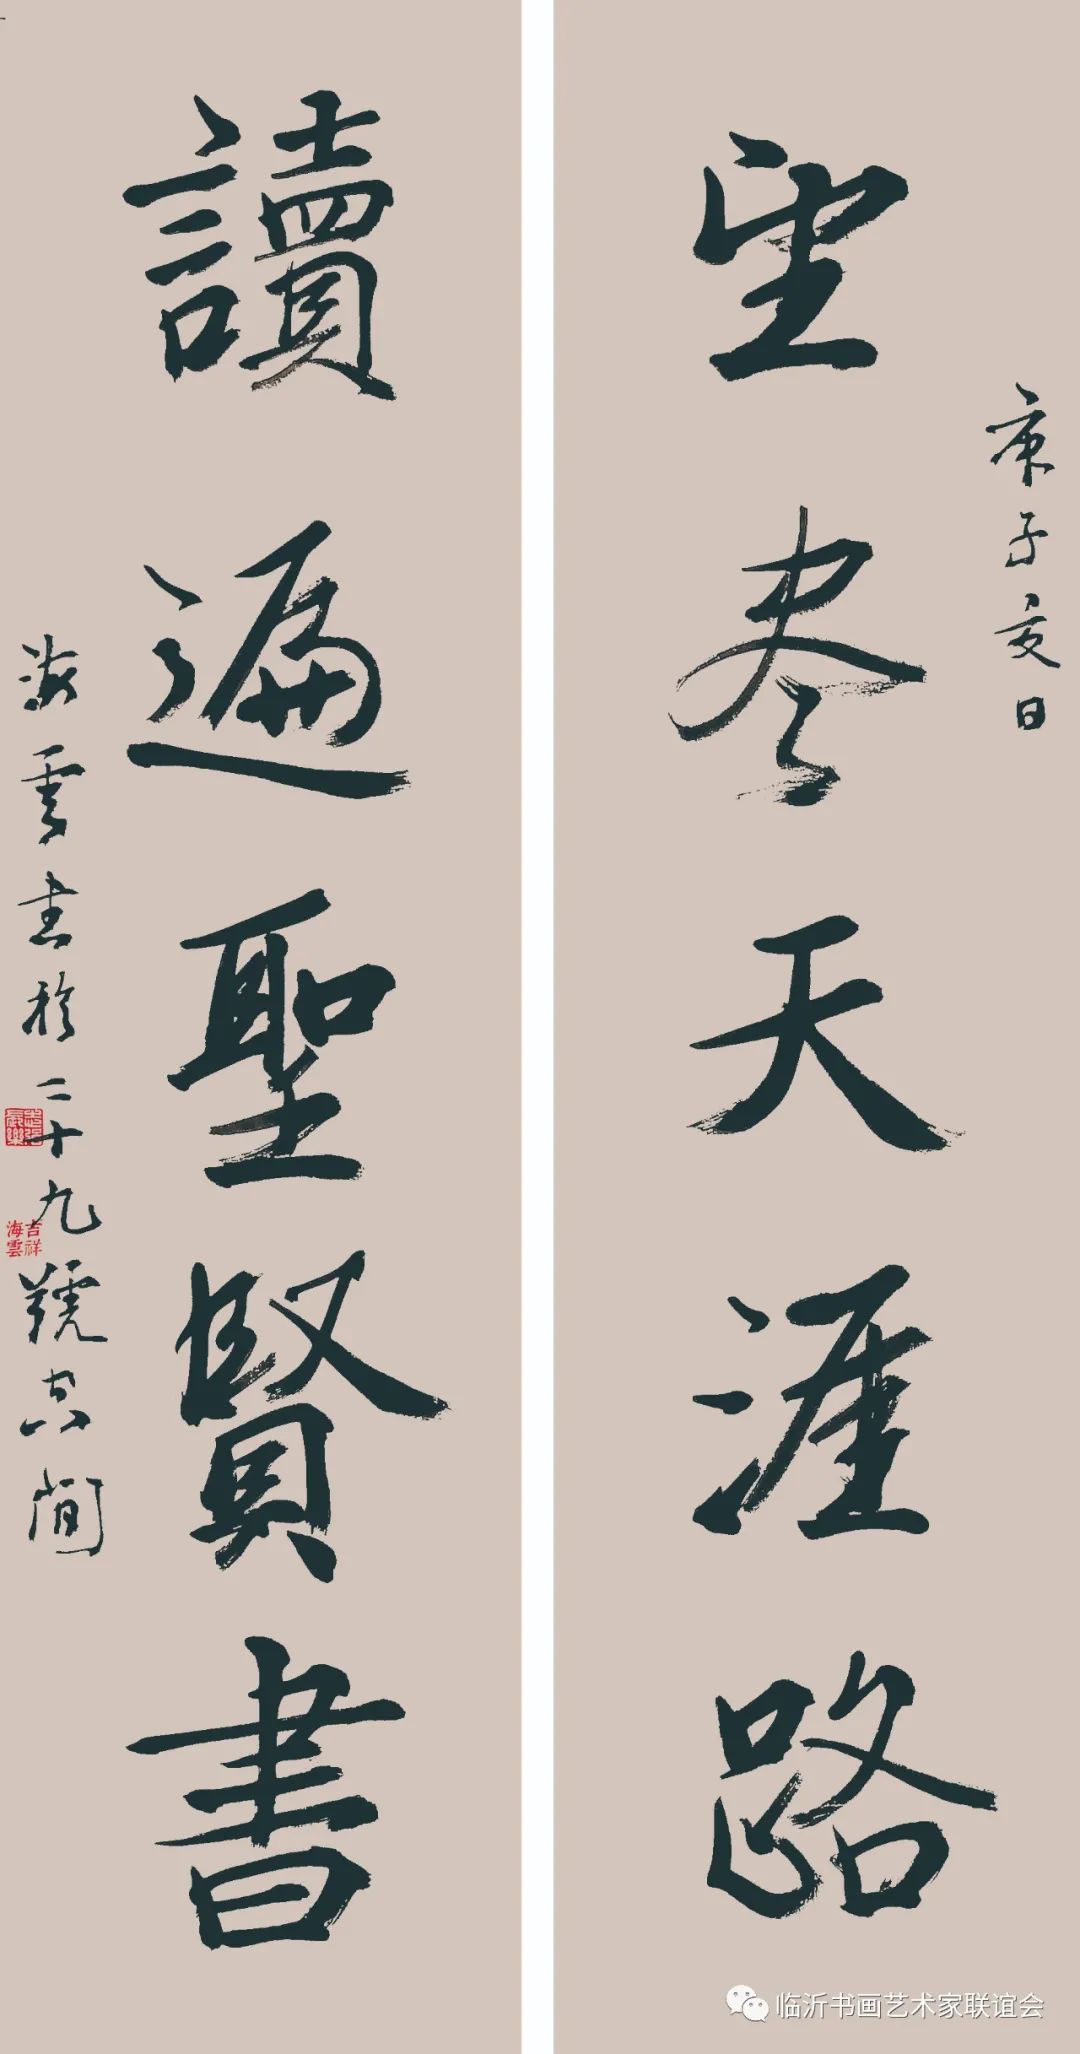 庚子夏日
望尽天涯路
讀遍聖賢書
海雲书於二十九號空间
吉祥
海雲
临沂书画艺术家联谊会